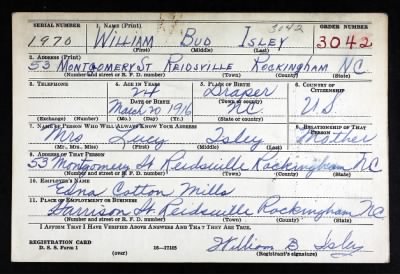 SERIAL NUMBER 1. NAME (Print) 3042 ORDER NUMBER
1970 WILLIAM BUD ISLEY 3042
(First) (Middle) (Last)
2. ADDRESS (Print)
53 MONTGOMERY ST REIDSVILLE ROCKINGHAM NC
(Number and street or R. F. D. number) (Town) (County) (State)
3. TELEPHONE 4. AGE IN YEARS 5. PLACE OF BIRTH 6. COUNTRY OF CITIZENSHIP
24 Draper
DATE OF BIRTH (Town or county)
March 20 1916 NC US
(Exchange) (Number) (Mo.) (Day) (Yr.) (State or country)
7. NAME OF PERSON WHO WILL ALWAYS KNOW YOUR ADDRESS 8. RELATIONSHIP OF THAT PERSON
Mrs Lucy Isley Mother
(Mr., Mrs., Miss) (First) (Middle) (Last)
9. ADDRESS OF THAT PERSON
53 Montgomery St Reidsville Rockingham NC
(Number and street or R. F. D. number) (Town) (County) (State)
10. EMPLOYER'S NAME
Edna Cotton Mills
11. PLACE OF EMPLOYMENT OR BUSINESS
Harrison St Reidsville Rockingham NC
(Number and street or R. F. D. number) (Town) (County) (State)
I AFFIRM THAT I HAVE VERIFIED ABOVE ANSWERS AND THAT THEY ARE TRUE.
REGISTRATION CARD
D. S. S. Form 1 (over) 16—17105 William B Isley
(Registrant's signature)